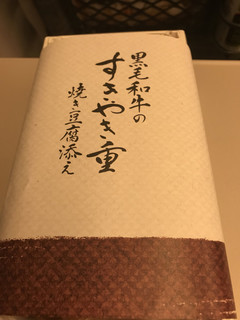 黒毛和牛の
すきやき重
焼き豆腐添え